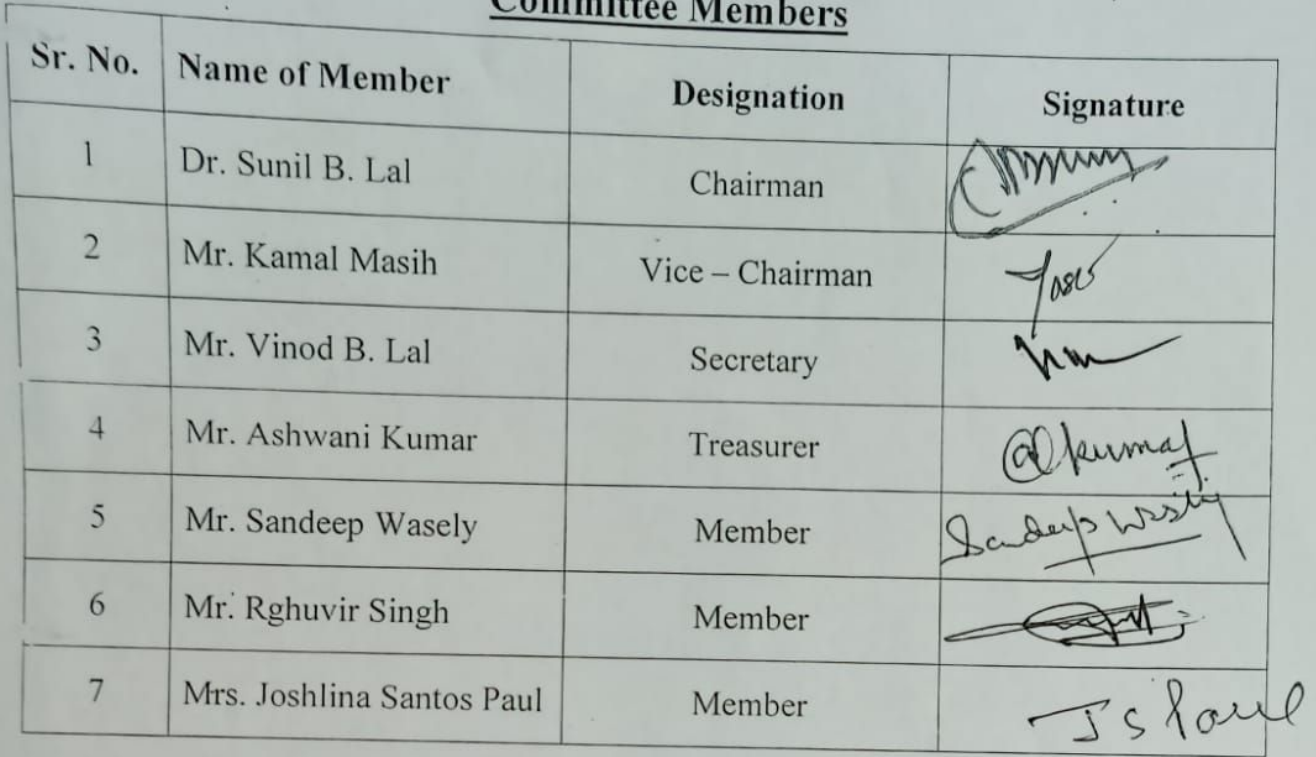 Committee Members
Sr. No. Name of Member Designation Signature
1 Dr. Sunil B. Lal Chairman
2 Mr. Kamal Masih Vice – Chairman
3 Mr. Vinod B. Lal Secretary
4 Mr. Ashwani Kumar Treasurer @kumar
5 Mr. Sandeep Wasely Member Sandeep
6 Mr. Rghuvir Singh Member
7 Mrs. Joshlina Santos Paul Member J S Paul